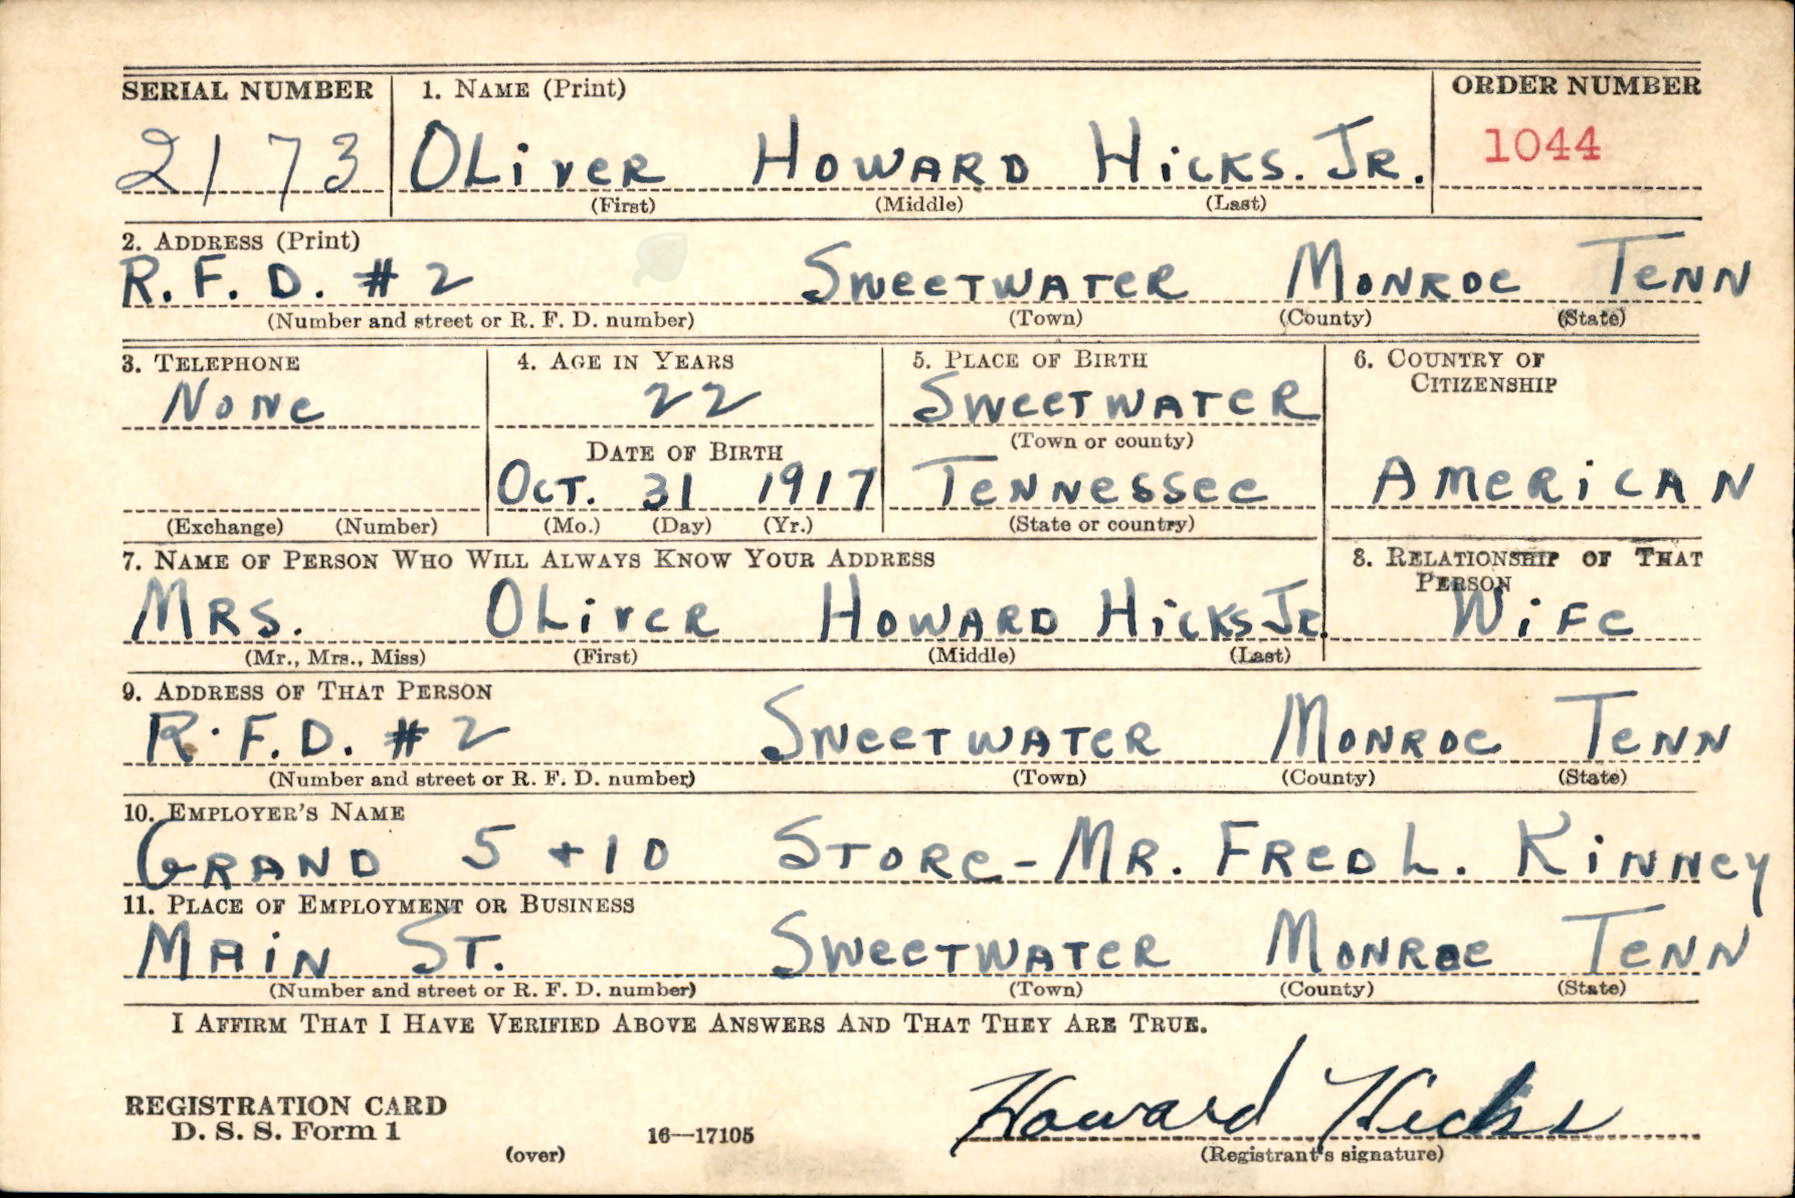 SERIAL NUMBER 1. NAME (Print) ORDER NUMBER
2173 OLiver HOWARD HicKS. JR. 1044
(First) (Middle) (Last)
2. ADDRESS (Print)
R.F.D. #2 SweeTWATeR MONROe TeNN
(Number and street or R. F. D. number) (Town) (County) (State)
3. TELEPHONE 4. AGE IN YEARS 5. PLACE OF BIRTH 6. COUNTRY OF
CITIZENSHIP
NoNe 22 SweeTWATeR
DATE OF BIRTH (Town or county)
OcT. 31 1917 TeNNessee AmeRiCAN
(Exchange) (Number) (Mo.) (Day) (Yr.) (State or country)
7. NAME OF PERSON WHO WILL ALWAYS KNOW YOUR ADDRESS 8. RELATIONSHIP OF THAT
PERSON
MRS. OLiveR HOWARD HicKS JR. WiFe
(Mr., Mrs., Miss) (First) (Middle) (Last)
9. ADDRESS OF THAT PERSON
R.F.D. #2 SweeTWATeR MONROe TeNN
(Number and street or R. F. D. number) (Town) (County) (State)
10. EMPLOYER'S NAME
GRAND 5 + 10 STORe - MR. FReD L. KiNNey
11. PLACE OF EMPLOYMENT OR BUSINESS
MAiN ST. SweeTWATeR MONROe TeNN
(Number and street or R. F. D. number) (Town) (County) (State)
I AFFIRM THAT I HAVE VERIFIED ABOVE ANSWERS AND THAT THEY ARE TRUE.
REGISTRATION CARD
D. S. S. Form 1 Howard Hicks
(over) 16—17105 (Registrant's signature)